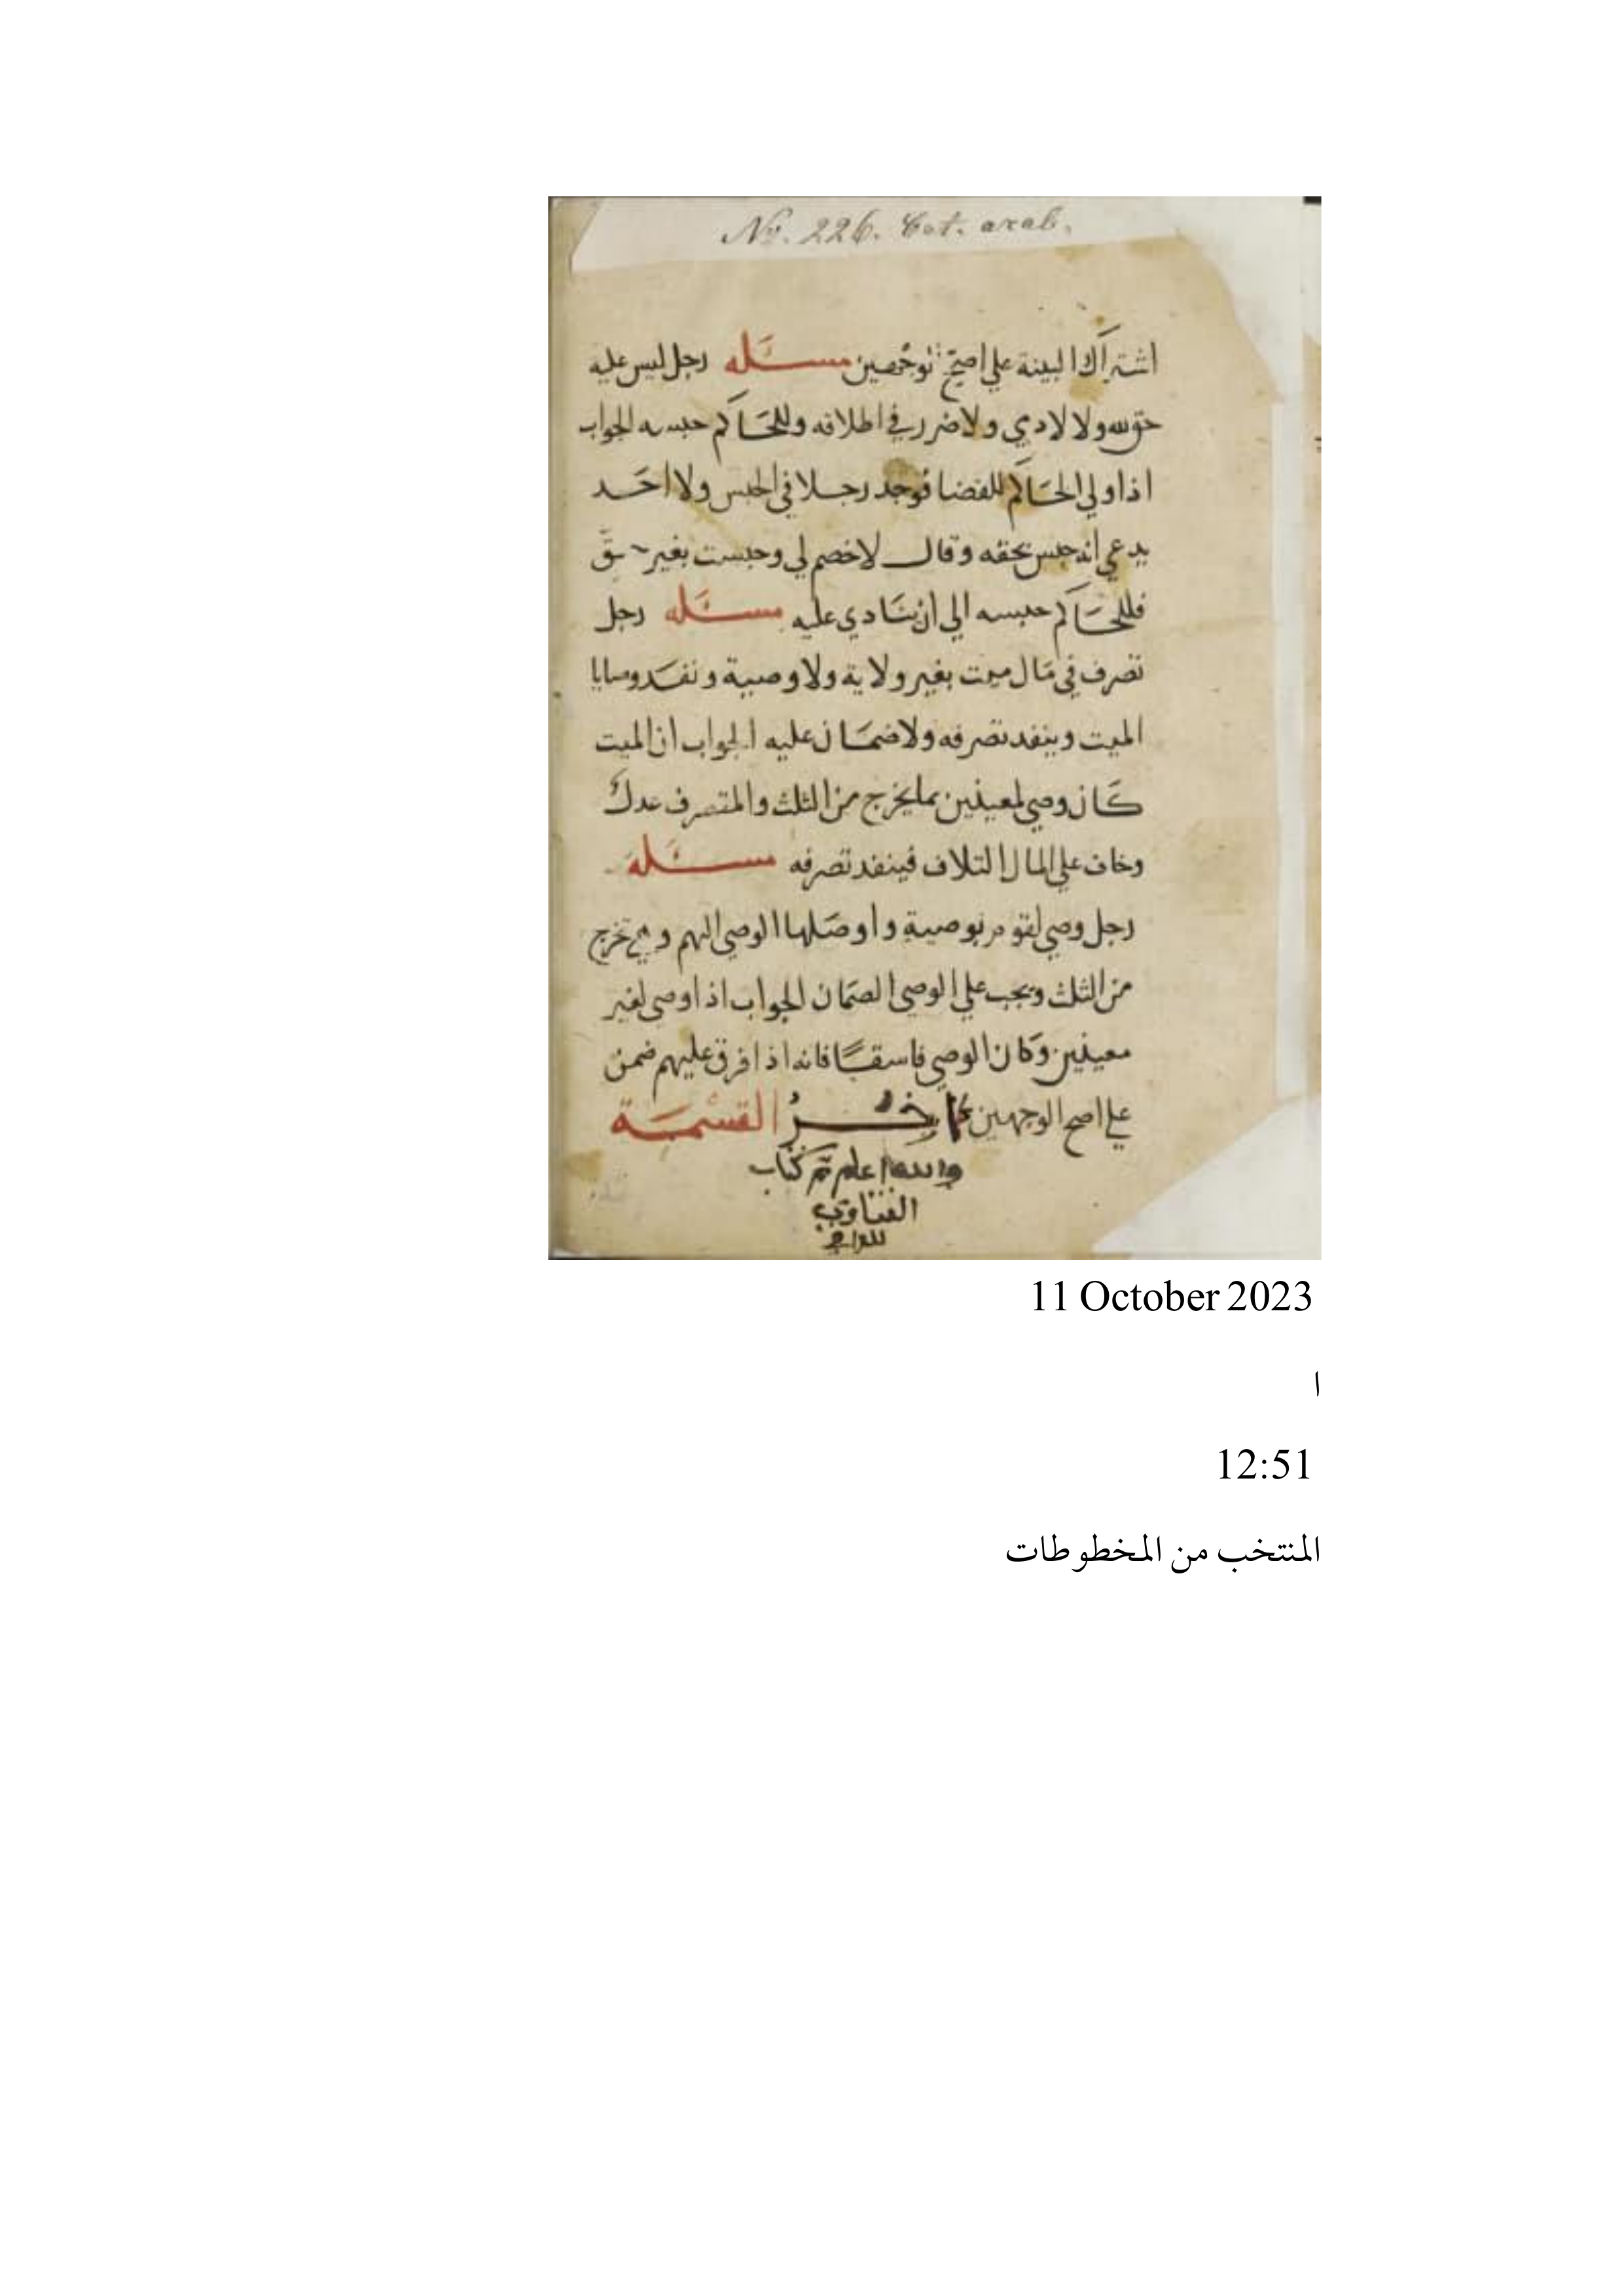 No. 226. Cot. arab.
اشتراك البينة علي اصح مسئله رجل ليس عليه
حق لله ولا لادمي ولا ضرر في اطلاقه وللحاكم حبسه الجواب
اذا ولي الحاكم للقضا فوجد رجلا في الحبس ولا احد
يدعي انه حبس بحقه وقال لا خصم لي وحبست بغير حق
فللحاكم حبسه الي ان ينادي عليه مسئله رجل
تصرف في مال ميت بغير ولاية ولا وصية ونفد وصايا
الميت وينفد تصرفه ولا ضمان عليه الجواب ان الميت
كان وصي لمعينين بما يخرج من الثلث والمتصرف عدل
وخاف علي المال التلاف فينفد تصرفه مسئله
رجل وصي لقوم بوصية واوصلها الوصي اليهم وهي تخرج
من الثلث ويجب علي الوصي الضمان الجواب اذا اوصي لغير
معينين وكان الوصي فاسقا فانه اذا فرق عليهم ضمن
علي اصح الوجهين القسمة
والله اعلم تم كتاب
الفتاوي
11 October 2023
ا
12:51
المنتخب من المخطوطات